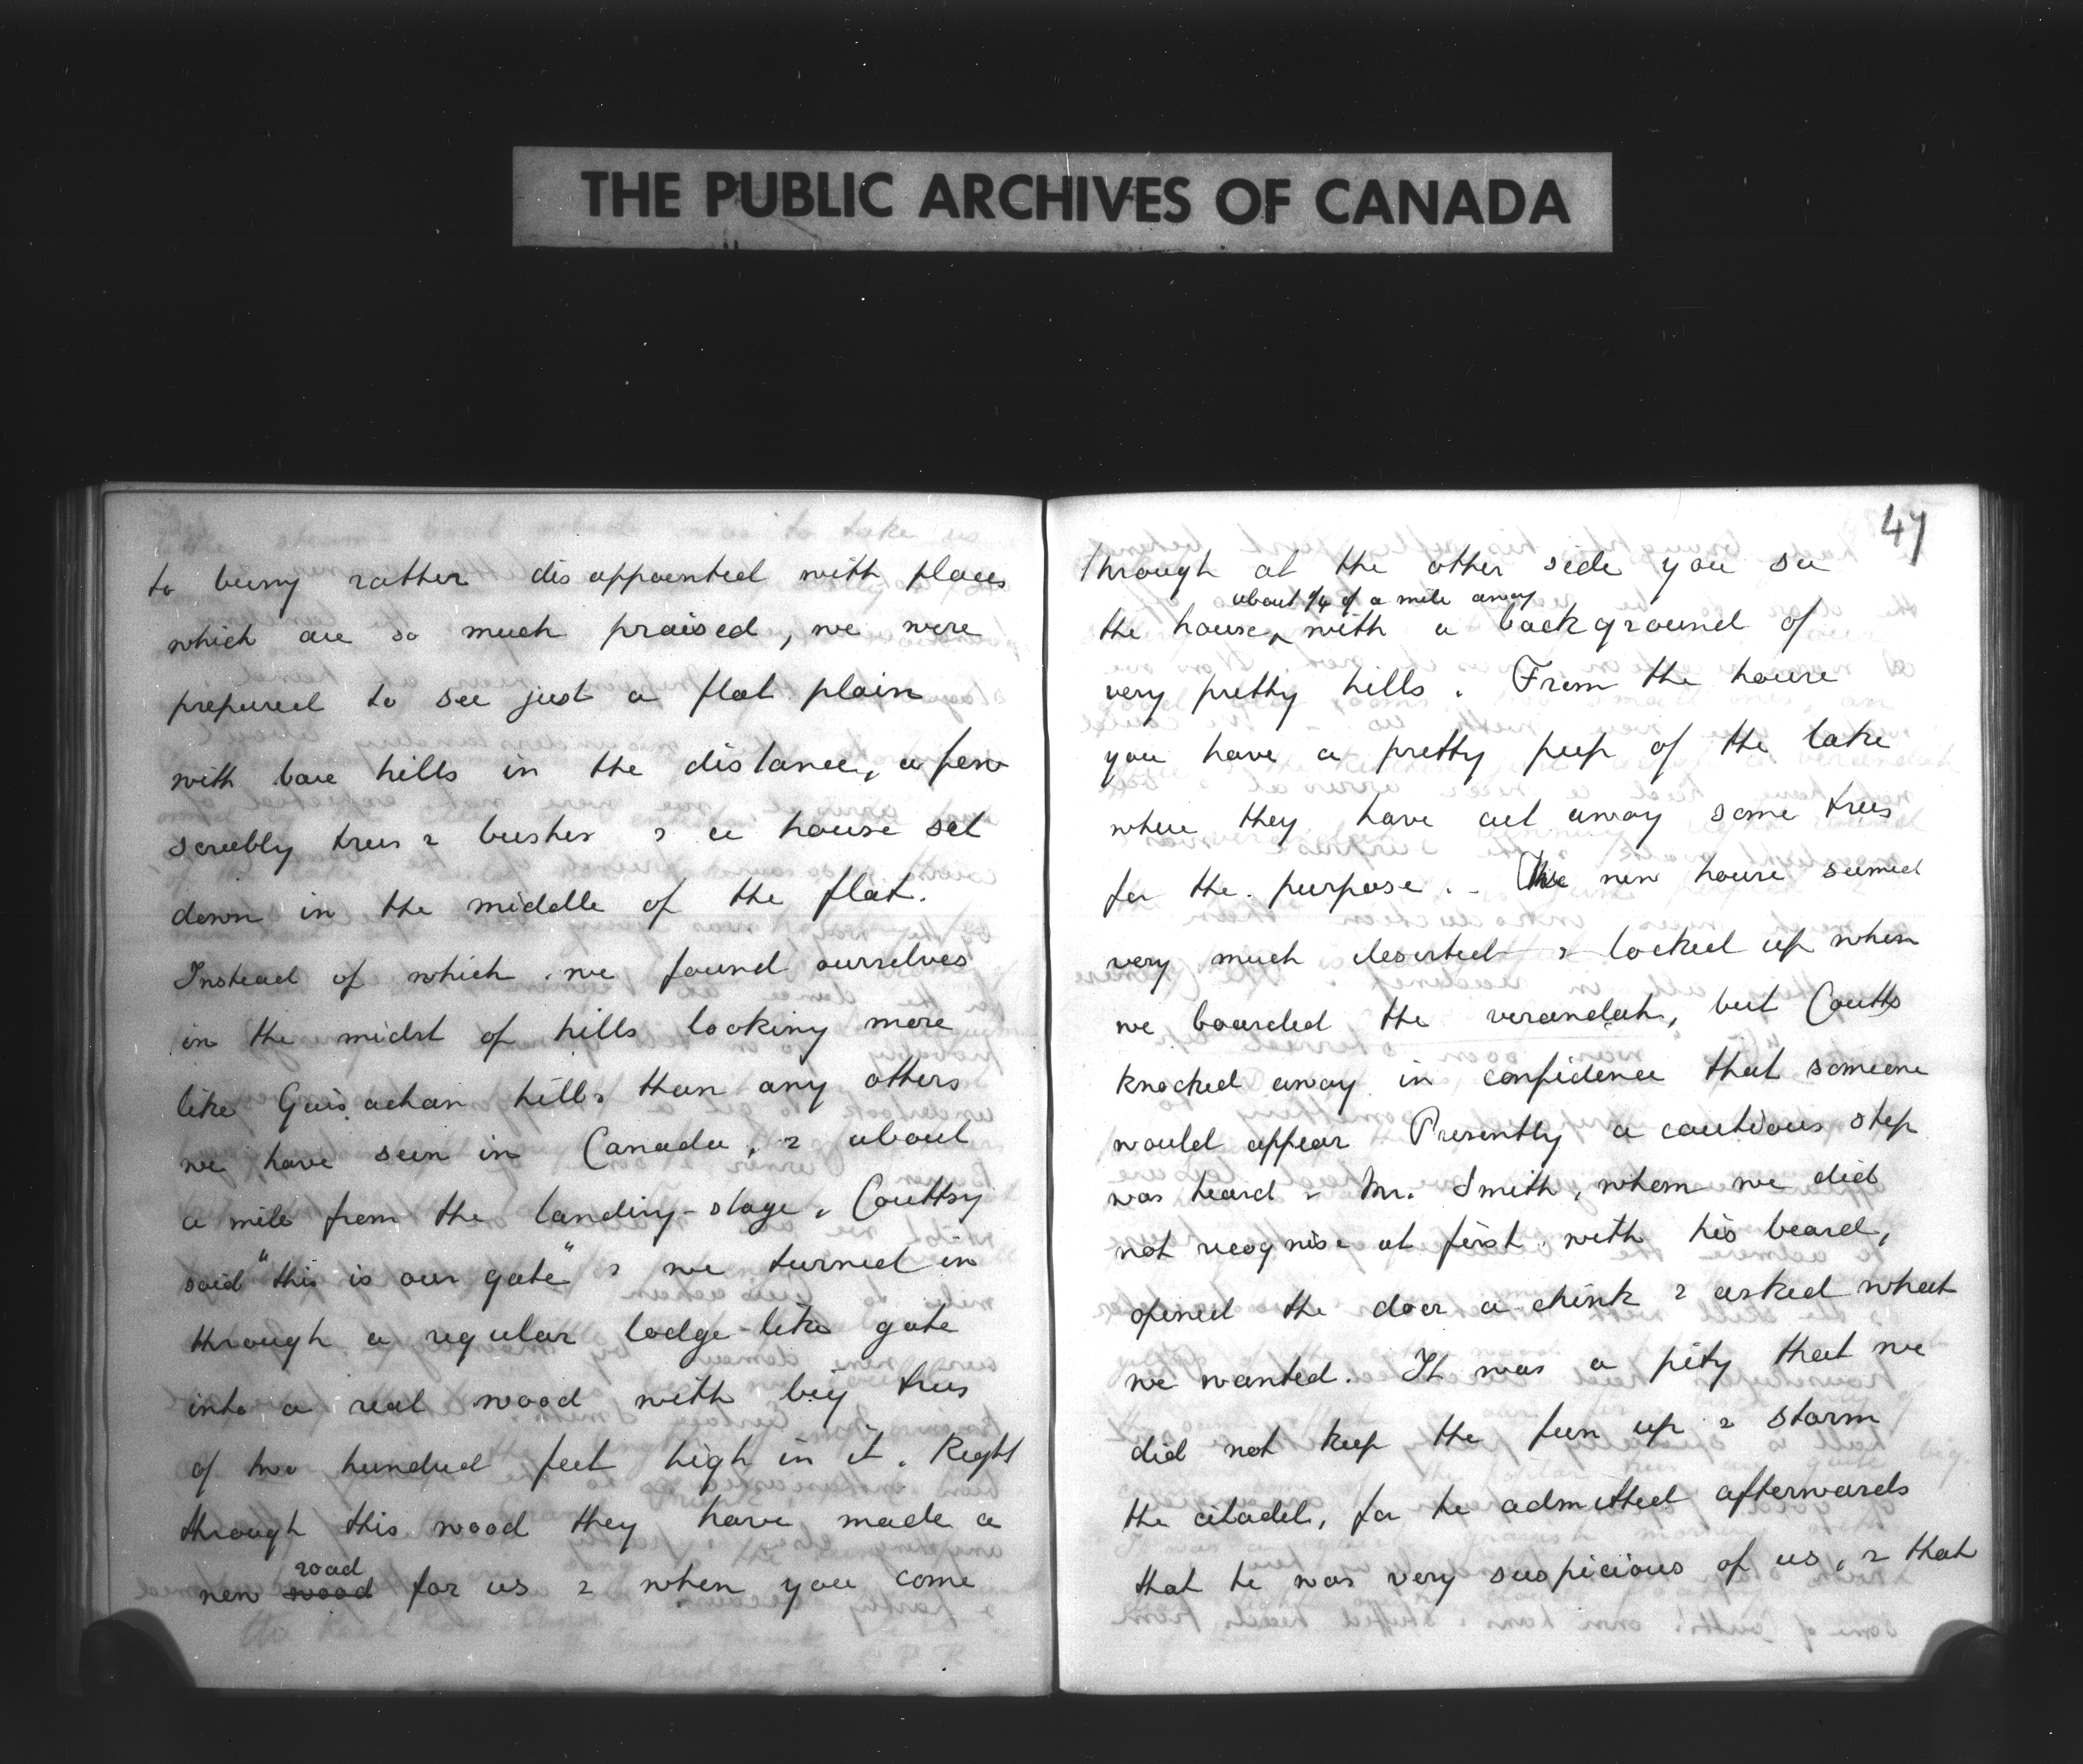 THE PUBLIC ARCHIVES OF CANADA
to being rather disappointed with places
which are so much praised, we were
prepared to see just a flat plain
with bare hills in the distance, a few
scrubby trees & bushes & a house set
down in the middle of the flat.
Instead of which we found ourselves
in the midst of hills looking more
like Guisachan hills than any others
we have seen in Canada, & about
a mile from the landing-stage, Couttsy
said "this is our gate" & we turned in
through a regular lodge-like gate
into a real wood with big trees
of two hundred feet high in it. Right
through this wood they have made a
road
new wood for us & when you come
47
through at the other side you see
about 1/4 of a mile away
the house, with a background of
very pretty hills. From the house
you have a pretty peep of the lake
where they have cut away some trees
for the purpose. - The new house seemed
very much deserted & locked up when
we boarded the verandah, but Coutts
knocked away in confidence that someone
would appear Presently a cautious step
was heard & Mr. Smith, whom we did
not recognise at first with his beard,
opened the door a chink & asked what
we wanted. It was a pity that we
did not keep the fun up & storm
the citadel, for he admitted afterwards
that he was very suspicious of us, & that